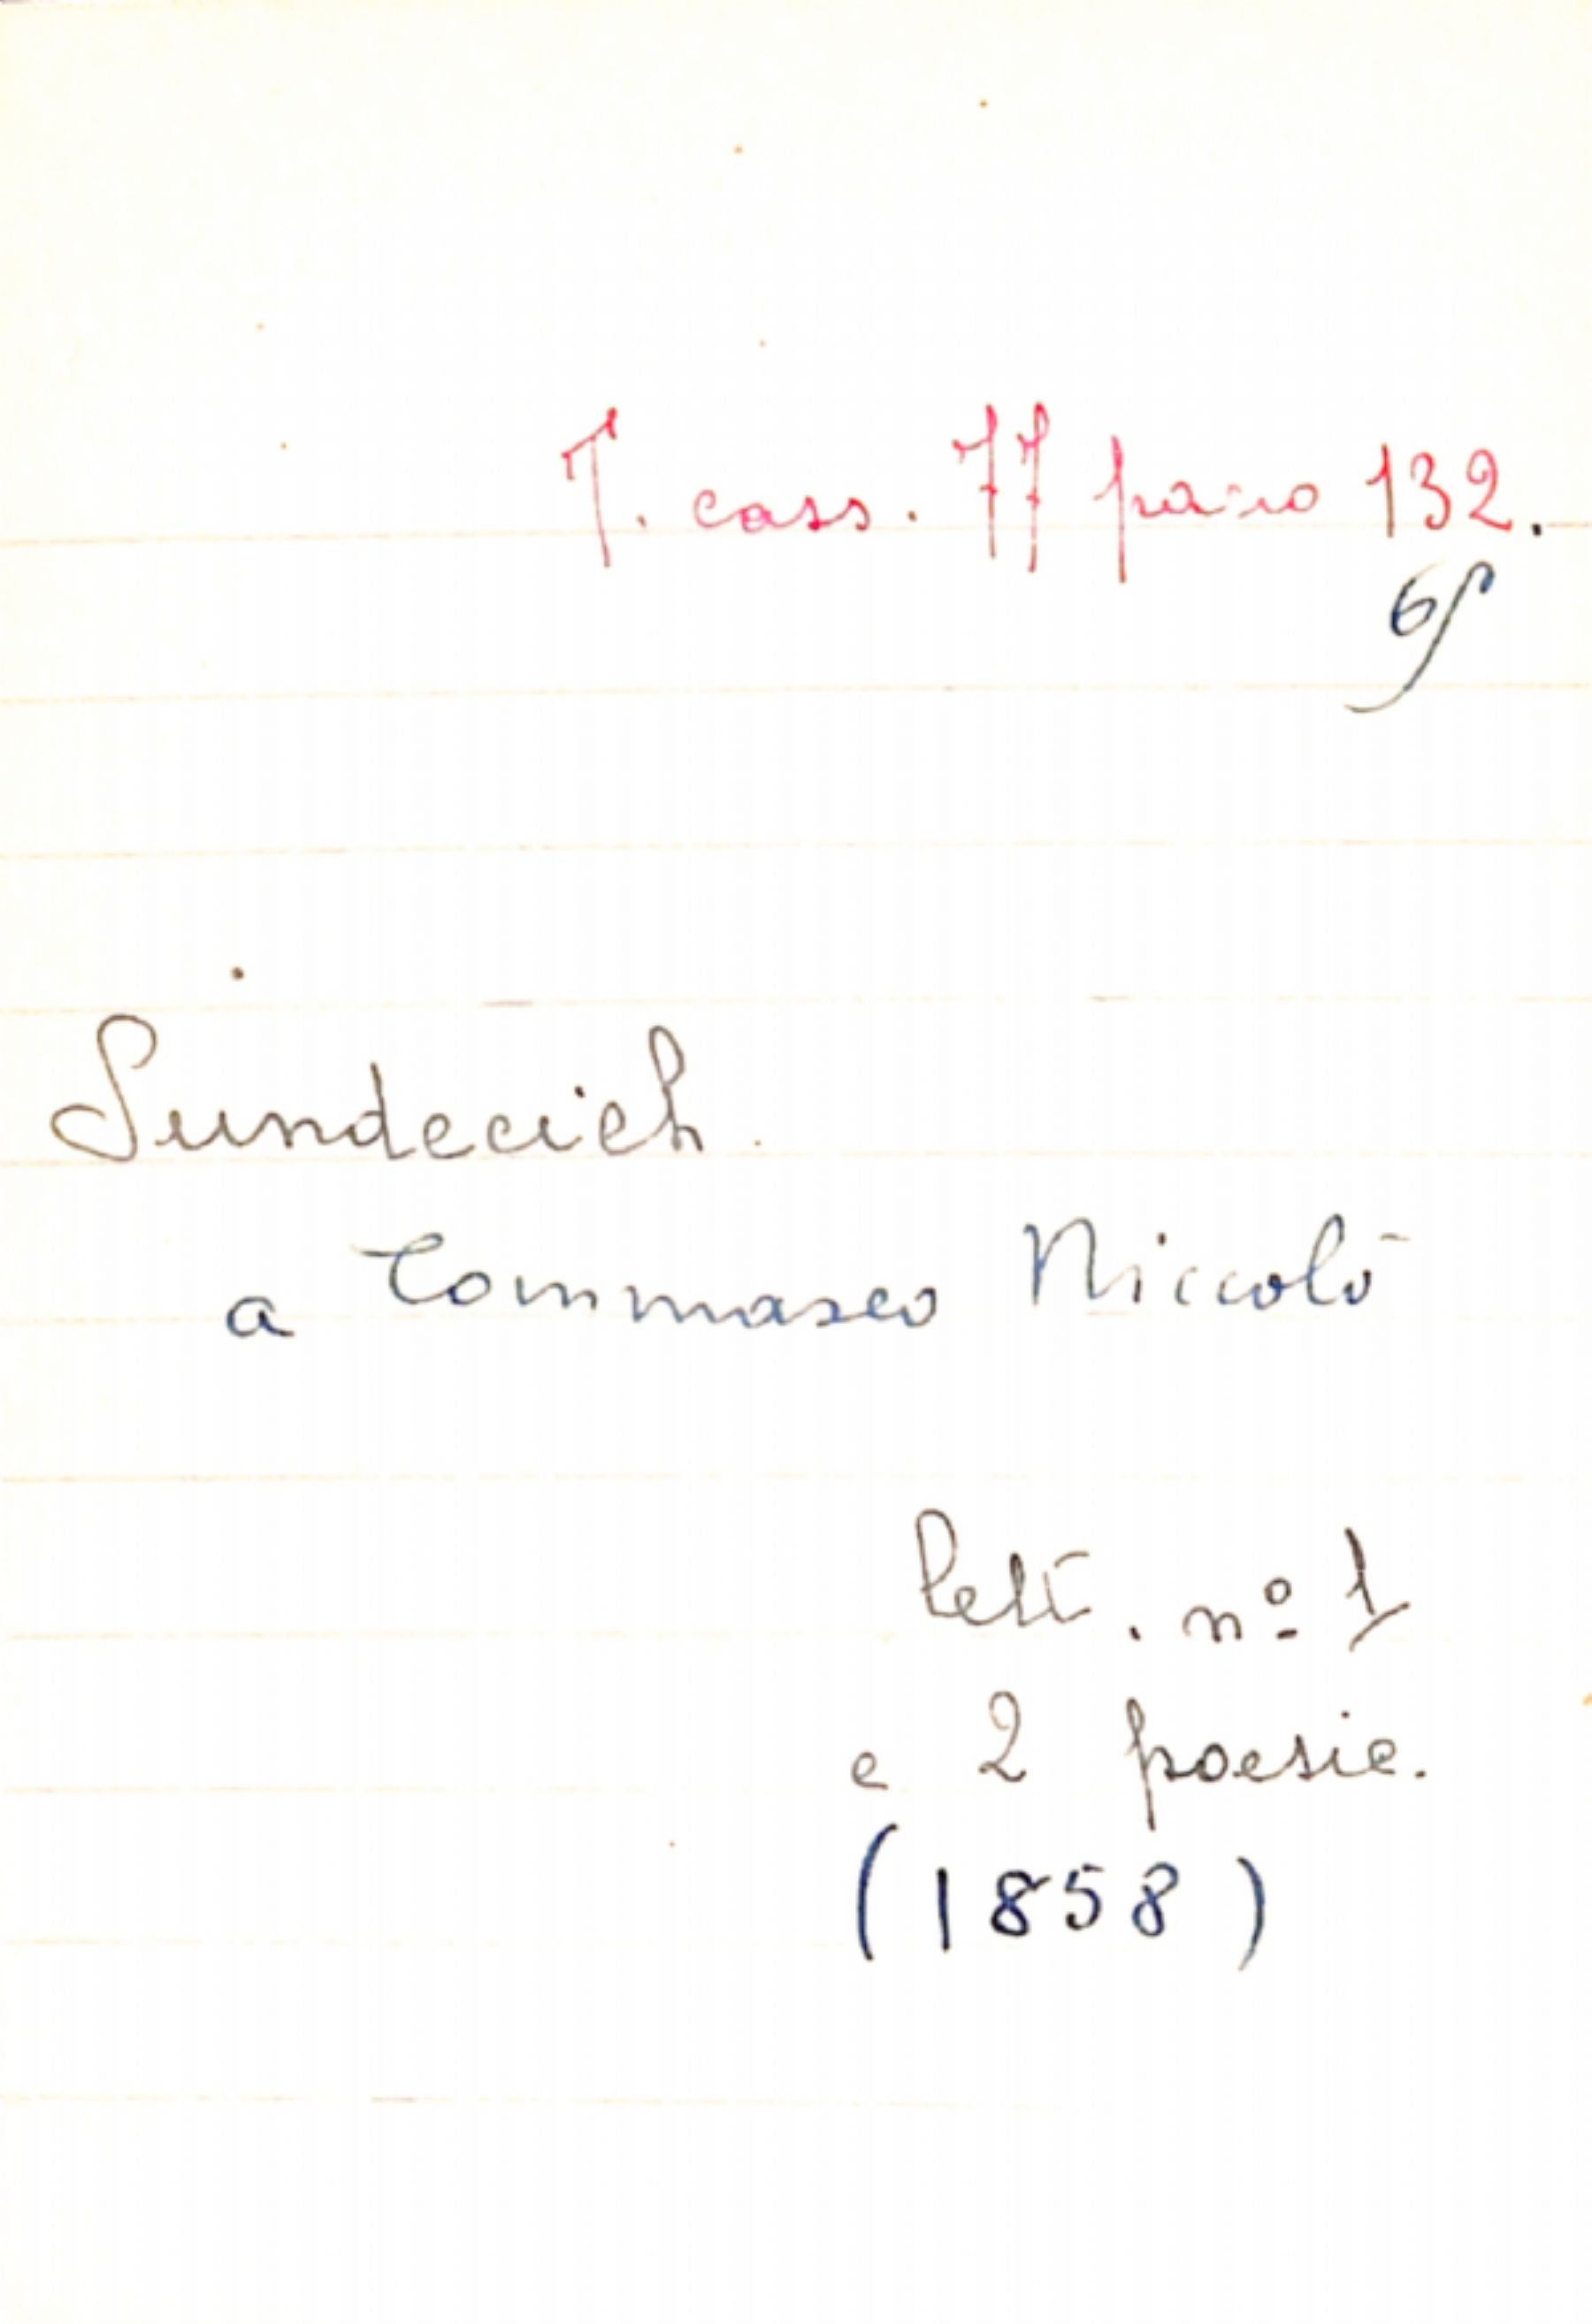 T. cass. 77 panno 132.
65
Sundecich.
a Tommaseo Niccolò
lett. nº 1
e 2 poesie.
(1858)